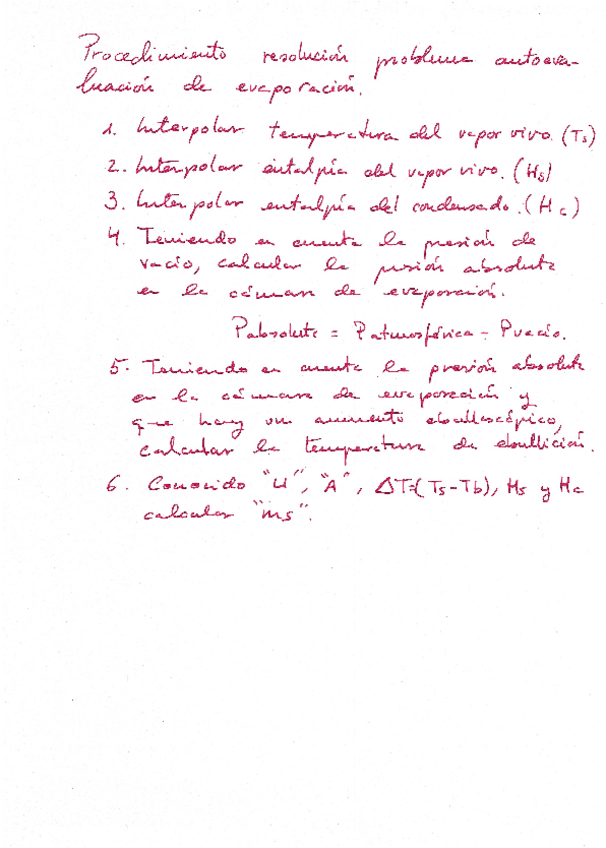 Procedimiento resolución problema autoeva-
luación de evaporación.
1. Interpolar temperatura del vapor vivo. (Ts)
2. Interpolar entalpía del vapor vivo. (Hs)
3. Interpolar entalpía del condensado. (Hc)
4. Teniendo en cuenta la presión de
vacío, calcular la presión absoluta
en la cámara de evaporación.
Pabsoluta = Patmosférica - Pvacío.
5. Teniendo en cuenta la presión absoluta
en la cámara de evaporación y
que hay un aumento ebulloscópico,
calcular la temperatura de ebullición.
6. Conocido "U", "A", ΔT=(Ts-Tb), Hs y Hc
calcular "ms".